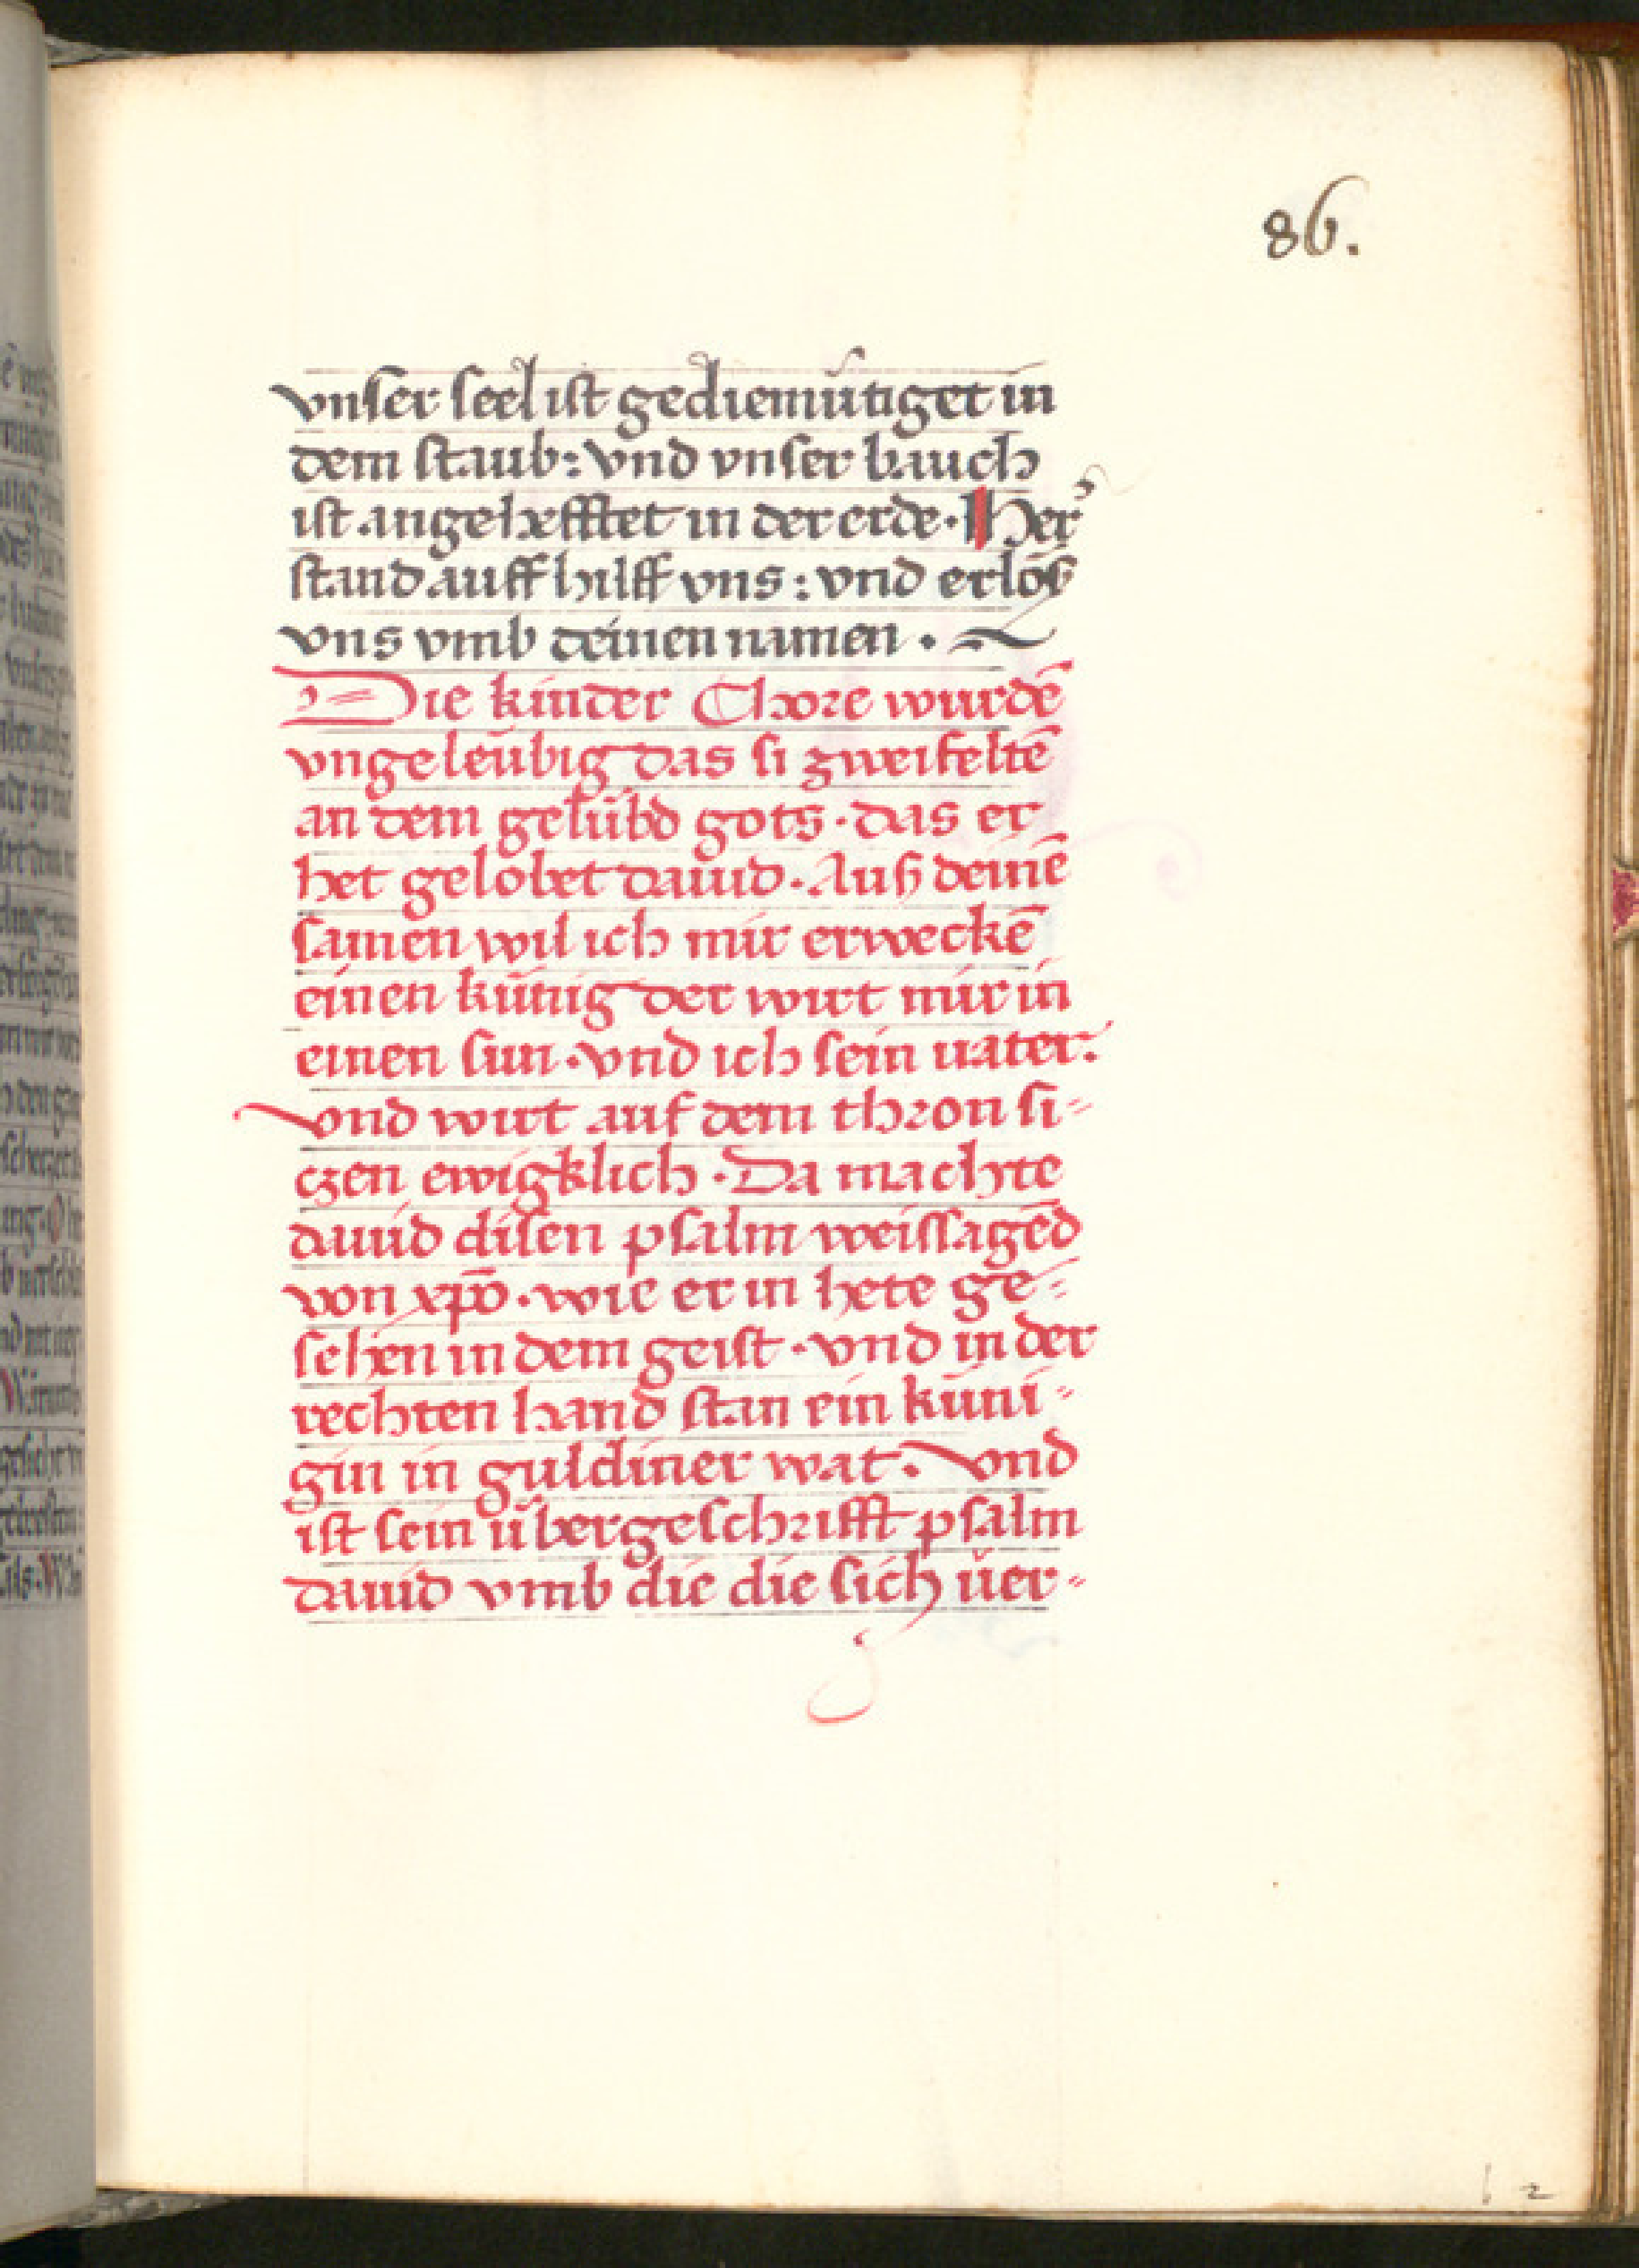 86.
vnser seel ist gediemütiget in
dem staub: vnd vnser bauch
ist angehefftet in der erde. Her
stand auff hilff vns: vnd erlöß
vns vmb deinen namen.
Die kinder Chore wurdē
vngeleübig das si zweifeltē
an dem gelübd gots. das er
het gelobet dauid. Auß deinē
samen wil ich mir erweckē
einen künig der wirt mir in
einen sun. vnd ich sein uater.
Vnd wirt auf dem thron si-
czen ewigklich. Da machte
dauid disen psalm weissagēd
von xp̄o. wie er in hete ge-
sehen in dem geist. vnd in der
rechten hand stan ein küni-
gin in guldiner wat. Vnd
ist sein übergeschrifft psalm
dauid vmb die die sich üer-
b 2